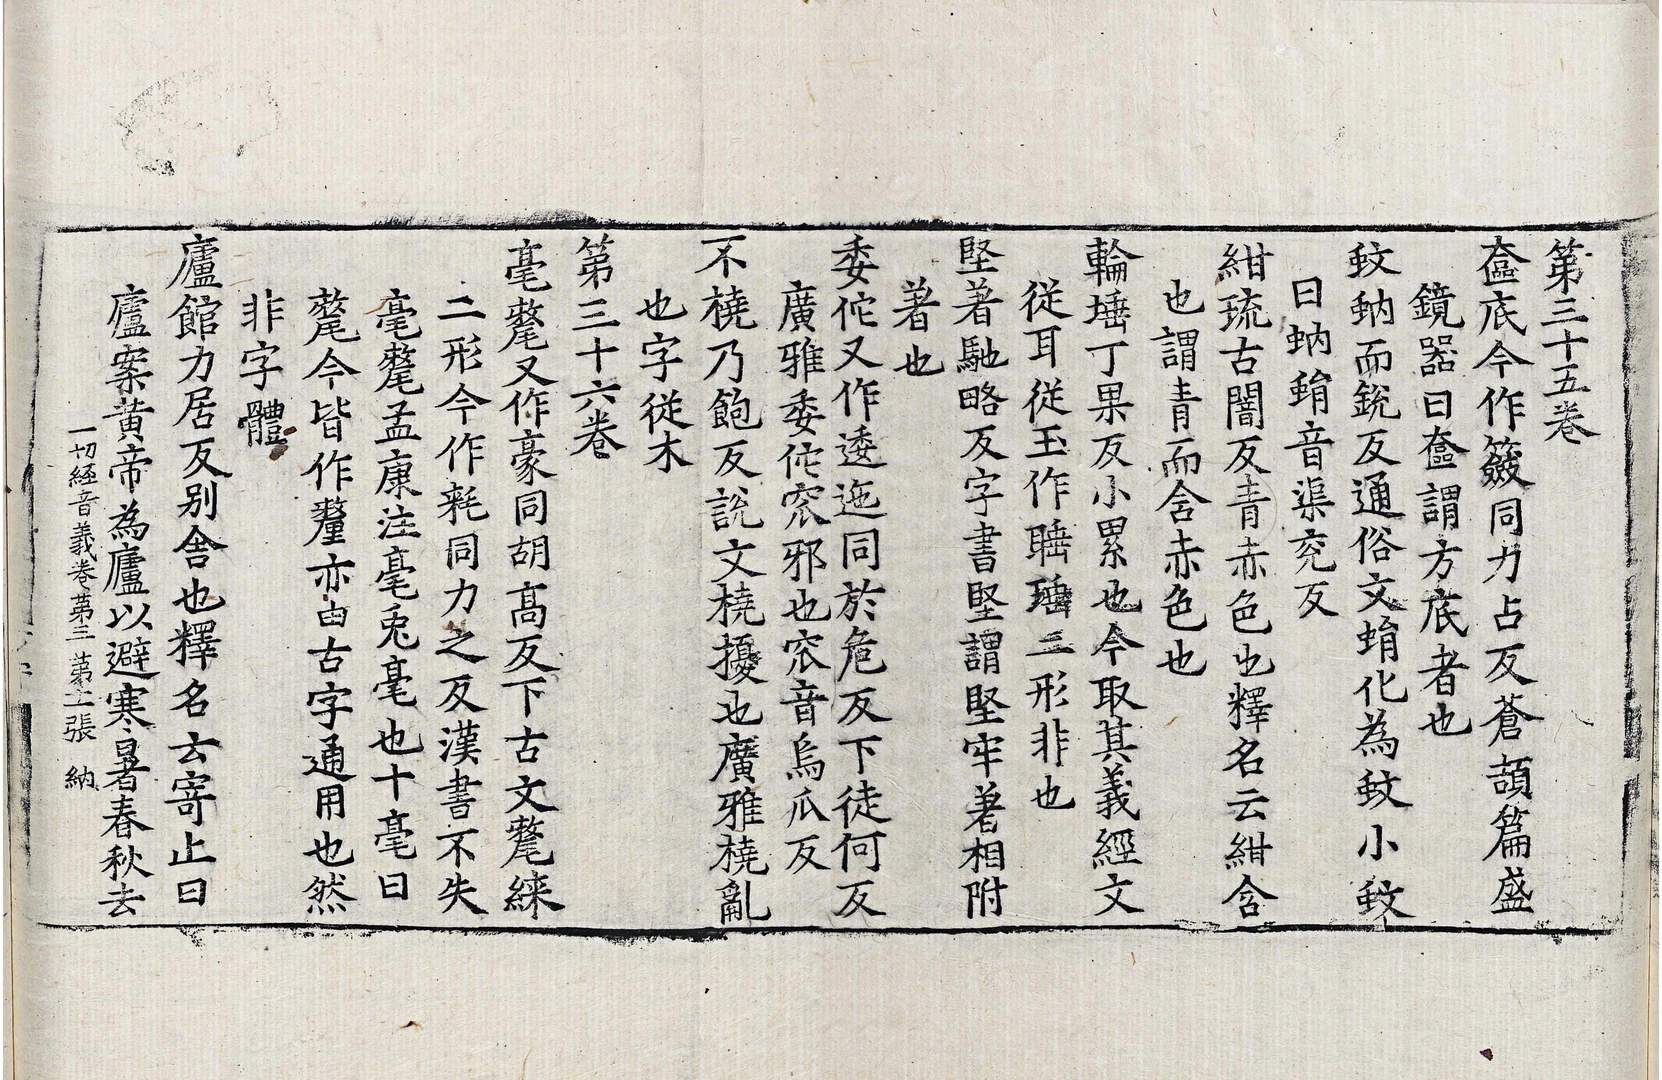 第三十五卷
奩底今作籢同力占反蒼頡篇盛
鏡器曰奩謂方底者也
蚊蚋而銳反通俗文蜎化為蚊小蚊
曰蚋蜎音渠兖反
紺琉古闇反青赤色也釋名云紺含
也謂青而含赤色也
輪埵丁果反小累也今取其義經文
從耳從玉作𦖋㻔二形非也
堅著馳略反字書堅謂堅牢著相附
著也
委佗又作逶迤同於危反下徒何反
廣雅委佗窊邪也窊音烏瓜反
不橈乃飽反說文橈擾也廣雅橈亂
也字從木
第三十六卷
毫氂又作豪同胡高反下古文氂練
二形今作耗同力之反漢書不失
毫氂孟康注毫兎毫也十毫曰
氂今皆作釐亦由古字通用也然
非字體
廬館力居反别舍也釋名云寄止曰
廬案黃帝為廬以避寒暑春秋去
一切經音義卷第三 第十二張 納